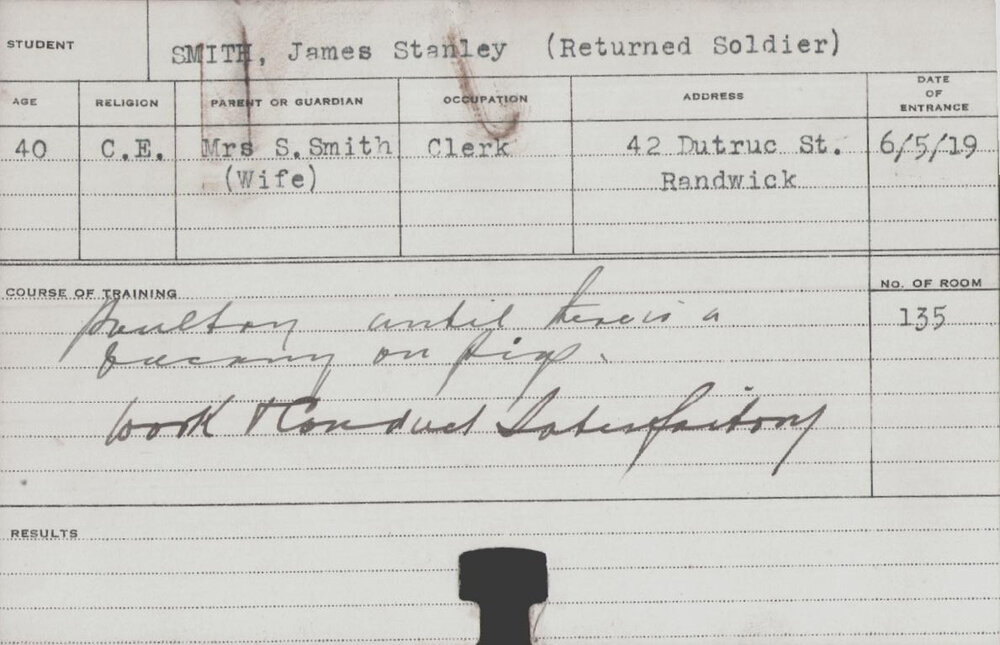 STUDENT
SMITH, James Stanley (Returned Soldier)
AGE RELIGION PARENT OR GUARDIAN OCCUPATION ADDRESS DATE OF ENTRANCE
40 C.E. Mrs S.Smith Clerk 42 Dutruc St. 6/5/19
(Wife) Randwick
COURSE OF TRAINING No. OF ROOM
Poultry until there is a 135
vacancy on pigs.
Work & Conduct Satisfactory
RESULTS